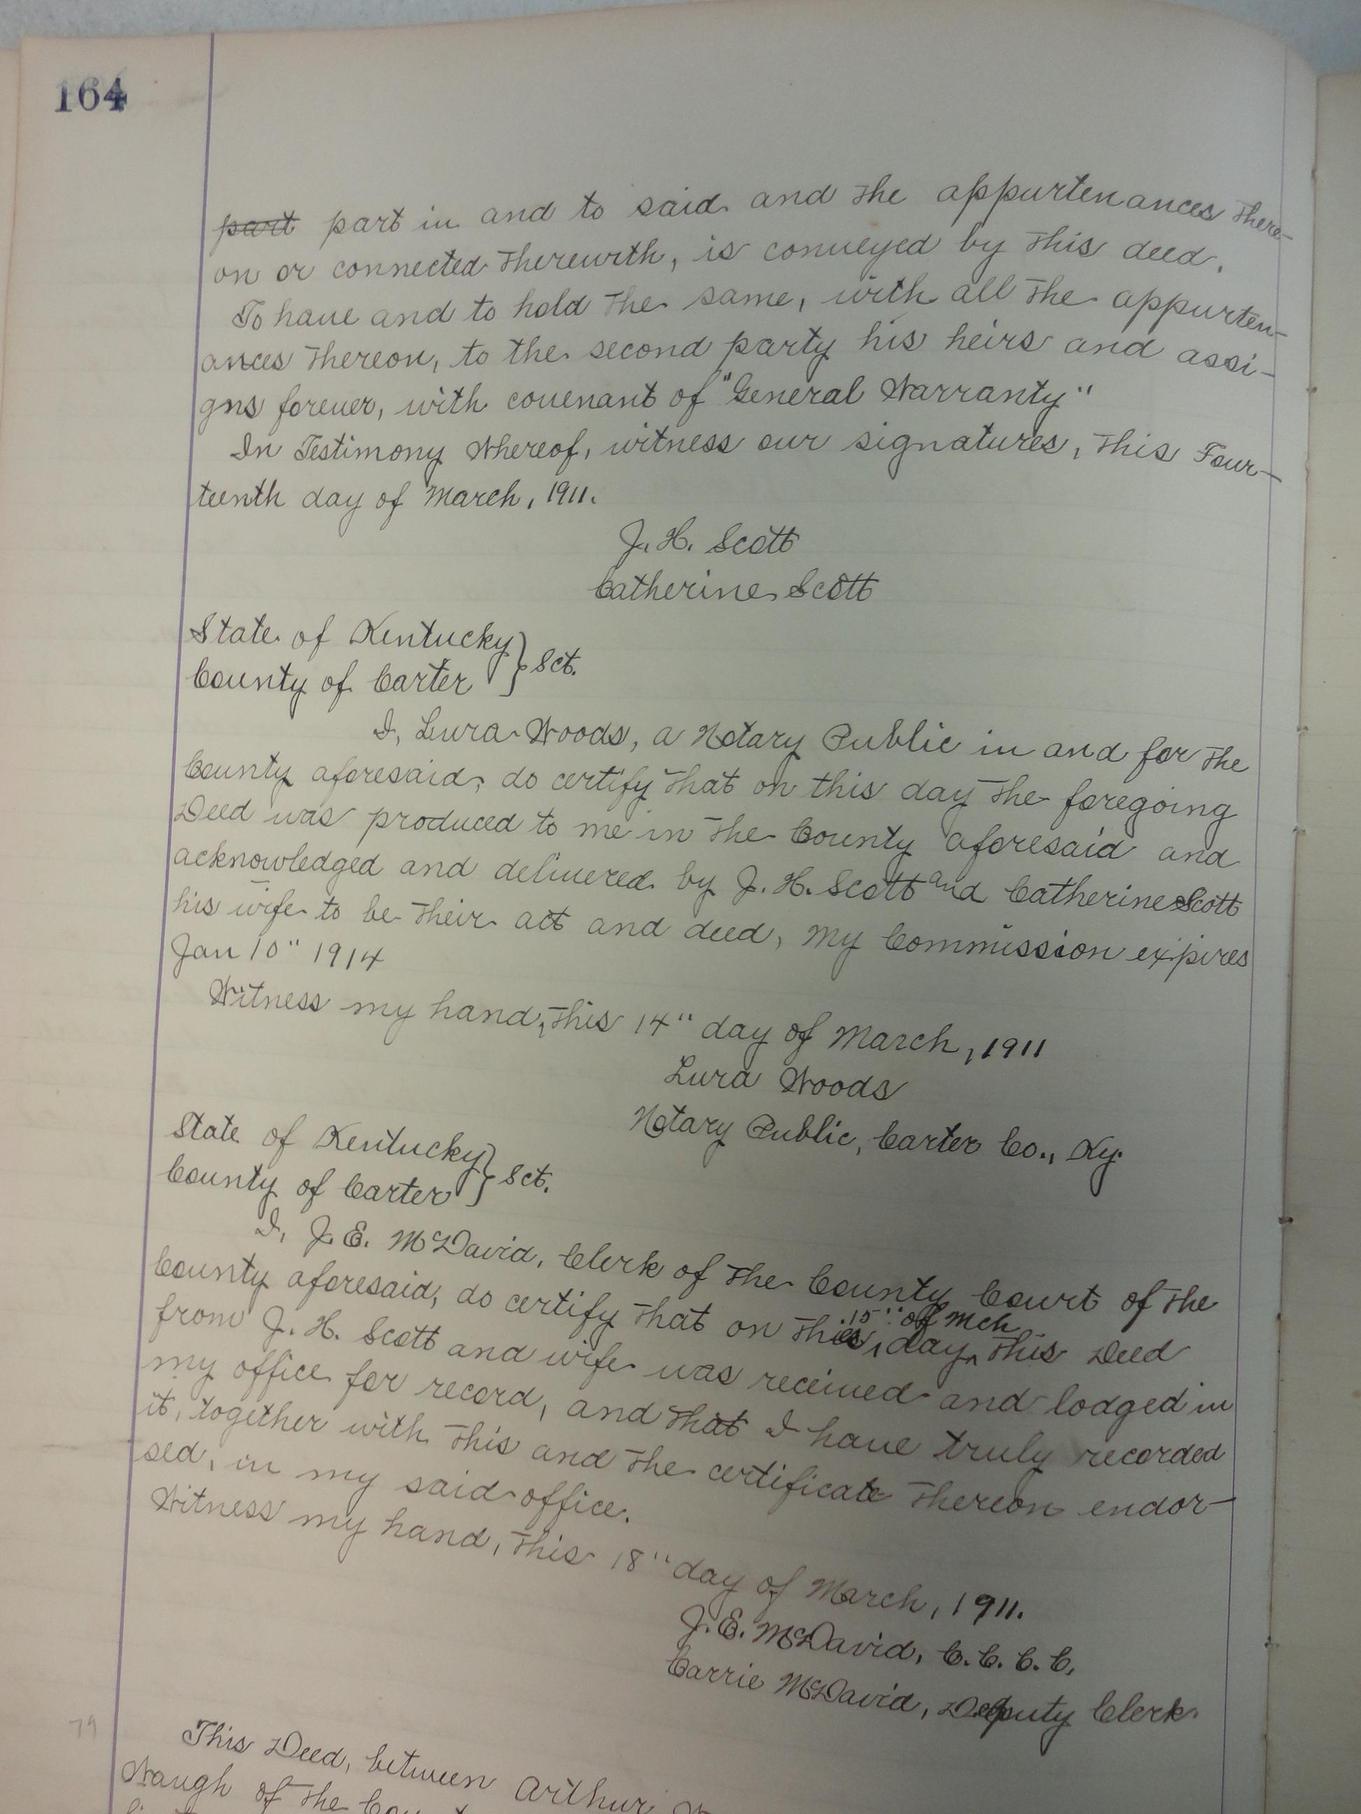 164
part part in and to said and the appurtenances there-
on or connected therewith, is conveyed by this deed.
To have and to hold the same, with all the appurten-
ances thereon, to the second party his heirs and assi-
gns forever, with covenant of "General Warranty"
In Testimony Whereof, witness our signatures, this Four-
teenth day of March, 1911.
J. H. Scott
Catherine Scott
State of Kentucky
County of Carter } Sct.
I, Lura Woods, a Notary Public in and for the
County aforesaid, do certify that on this day the foregoing
Deed was produced to me in the County aforesaid and
acknowledged and delivered by J. H. Scott and Catherine Scott
his wife to be their act and deed, My Commission expires
Jan 10" 1914
Witness my hand, this 14" day of March, 1911
Lura Woods
Notary Public, Carter Co., Ky.
State of Kentucky
County of Carter } Sct.
I, J. E. McDavid, Clerk of the County Court of the
County aforesaid, do certify that on the 15" day of Mch this Deed
from J. H. Scott and wife was received and lodged in
my office for record, and that I have truly recorded
it, together with this and the certificate thereon endor-
sed, in my said office.
Witness my hand, this 18" day of March, 1911.
J. E. McDavid, C. C. C. C.
Carrie McDavid, Deputy Clerk
79
This Deed, between Arthur
Waugh of the